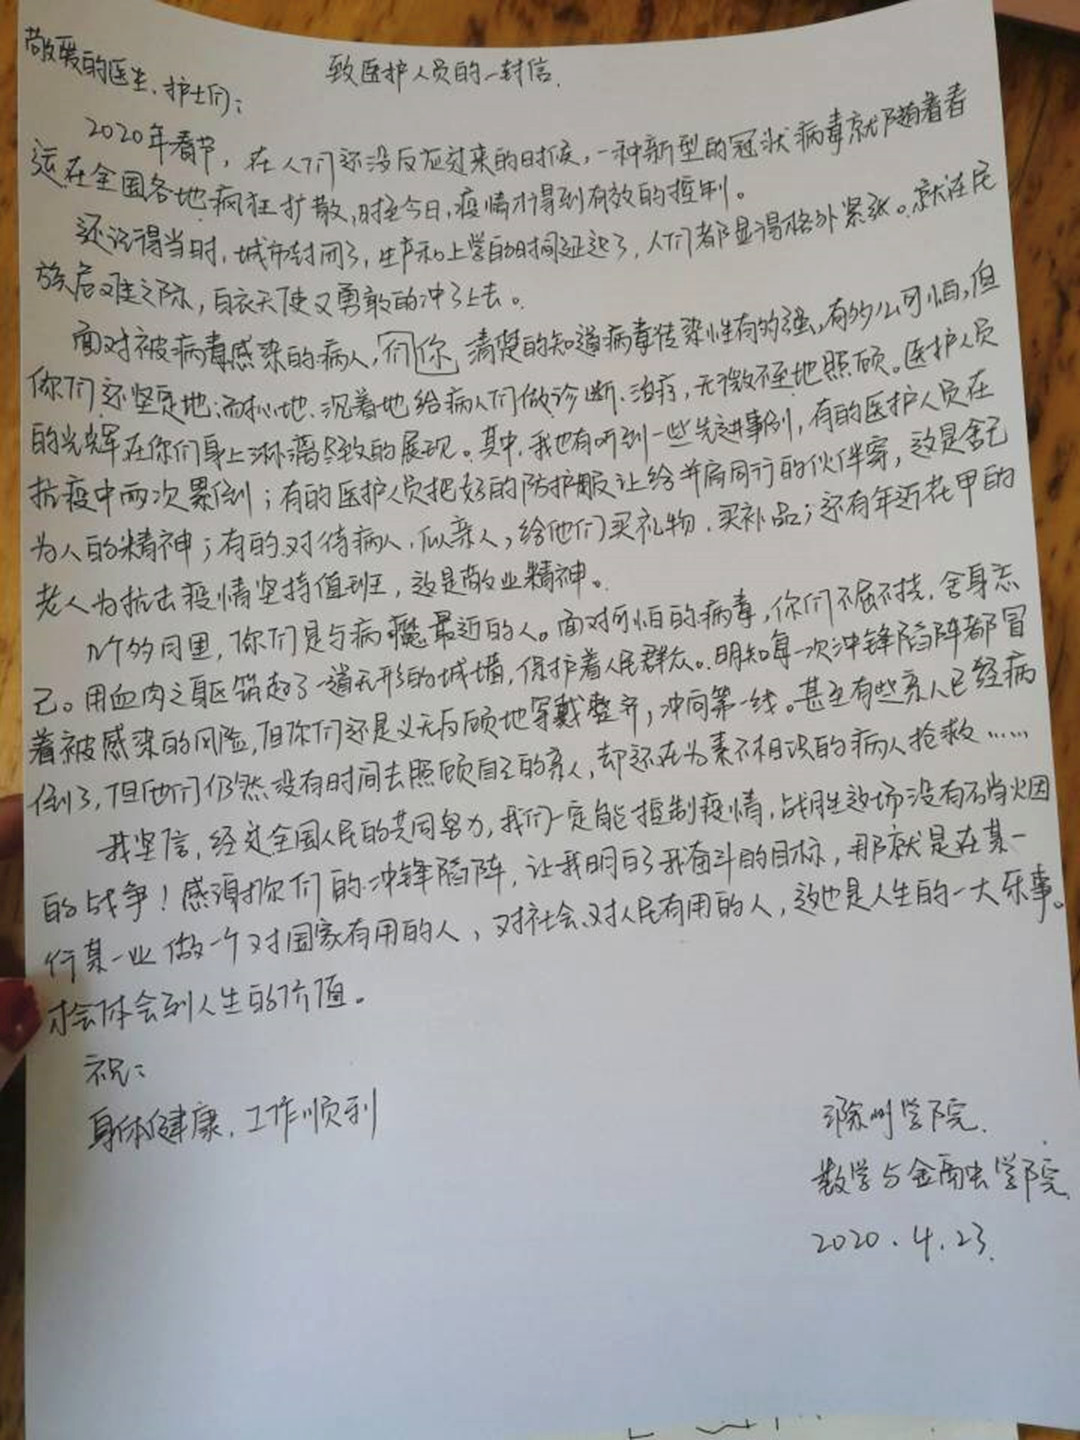 致医护人员的一封信.
敬爱的医生、护士们:
2020年春节,在人们还没反应过来的时候,一种新型的冠状病毒就随着春
运在全国各地疯狂扩散,时至今日,疫情才得到有效的控制。
还记得当时,城市封闭了,生产和上学的时间延迟了,人们都显得格外紧张。就在民
族危难之际,白衣天使又勇敢的冲了上去。
面对被病毒感染的病人,们你清楚的知道病毒传染性有的强,有的么可怕,但
你们还坚定地、沉着地给病人们做诊断、治疗,无微不至地照顾。医护人员
的光辉在你们身上淋漓尽致的展现。其中,我也有听到一些先进事例,有的医护人员在
抗疫中两次累倒;有的医护人员把好的防护服让给并肩同行的伙伴穿,这是舍己
为人的精神;有的对待病人,似亲人,给他们买礼物、买补品;还有年近花甲的
老人为抗击疫情坚持值班,这是敬业精神。
几个多月里,你们是与病魔最近的人。面对可怕的病毒,你们不屈不挠,舍身忘
己。用血肉之躯筑起了一道无形的城墙,保护着人民群众。明知每一次冲锋陷阵都冒
着被感染的风险,但你们还是义无反顾地穿戴整齐,冲向第一线。甚至有些亲人已经病
倒了,但他们仍然没有时间去照顾自己的亲人,却还在为素不相识的病人抢救……
我坚信,经过全国人民的共同努力,我们一定能控制疫情,战胜这场没有硝烟
的战争!感谢你们的冲锋陷阵,让我明白了我奋斗的目标,那就是在某一
行某一业做一个对国家有用的人,对社会、对人民有用的人,这也是人生的一大乐事。
才会体会到人生的价值。
祝:
身体健康,工作顺利
滁州学院.
数学与金融学院
2020.4.23.